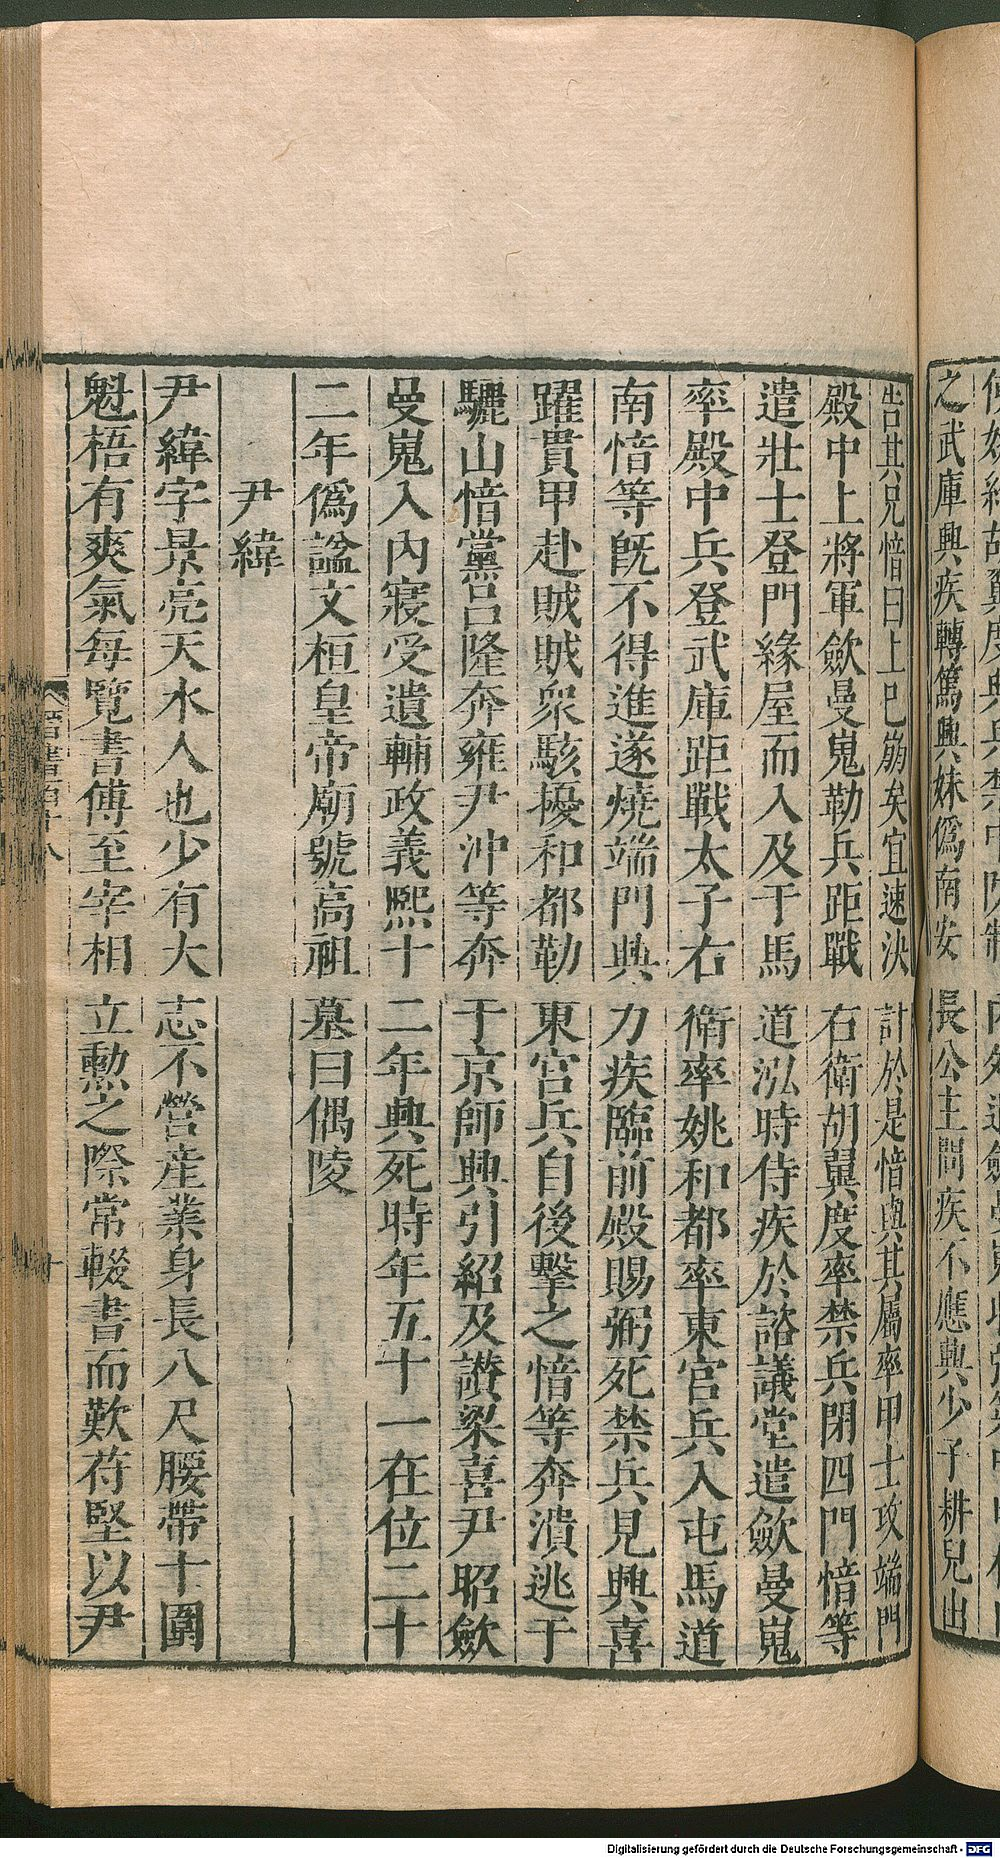 之武庫興疾轉篤興妹僞南安長公主問疾不應興少子耕兒出
告其兄愔曰上已崩矣宜速決計於是愔與其屬率甲士攻端門
殿中上將軍歛曼嵬勒兵距戰右衛胡翼度率禁兵閉四門愔等
遣壯士登門緣屋而入及于馬道泓時侍疾於諮議堂遣歛曼嵬
率殿中兵登武庫距戰太子右衛率姚和都率東宮兵入屯馬道
南愔等旣不得進遂燒端門興力疾臨前殿賜弼死禁兵見興喜
躍貫甲赴賊賊衆駭擾和都勒東宮兵自後擊之愔等奔潰逃于
驪山愔黨呂隆奔雍尹沖等奔于京師興引紹及讚梁喜尹昭歛
曼嵬入內寢受遺輔政義熙十二年興死時年五十一在位二十
二年僞諡文桓皇帝廟號高祖墓曰偶陵
尹緯
尹緯字景亮天水人也少有大志不營産業身長八尺腰帶十圍
魁梧有爽氣每覽書傳至宰相立勲之際常輟書而歎苻堅以尹
Digitalisierung gefördert durch die Deutsche Forschungsgemeinschaft - DFG